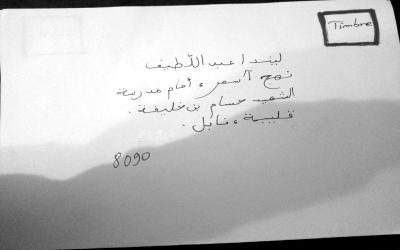 Timbre
ليندا عبد اللطيف
نهج الأسمر، أمام مدرسة
الشهيد حسام بن خليفة.
قليبية، نابل.
8090